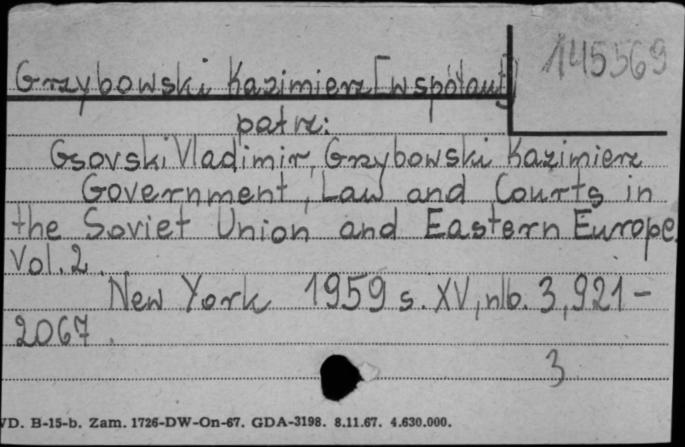 145569
Grzybowski Kazimierz [współaut]
patrz:
Gsovski Vladimir, Grzybowski Kazimierz
Government, Law and Courts in
the Soviet Union and Eastern Europe.
Vol. 2.
New York 1959 s. XV, nlb. 3, 921-
2067.
3
VD. B-15-b. Zam. 1726-DW-On-67. GDA-3198. 8.11.67. 4.630.000.